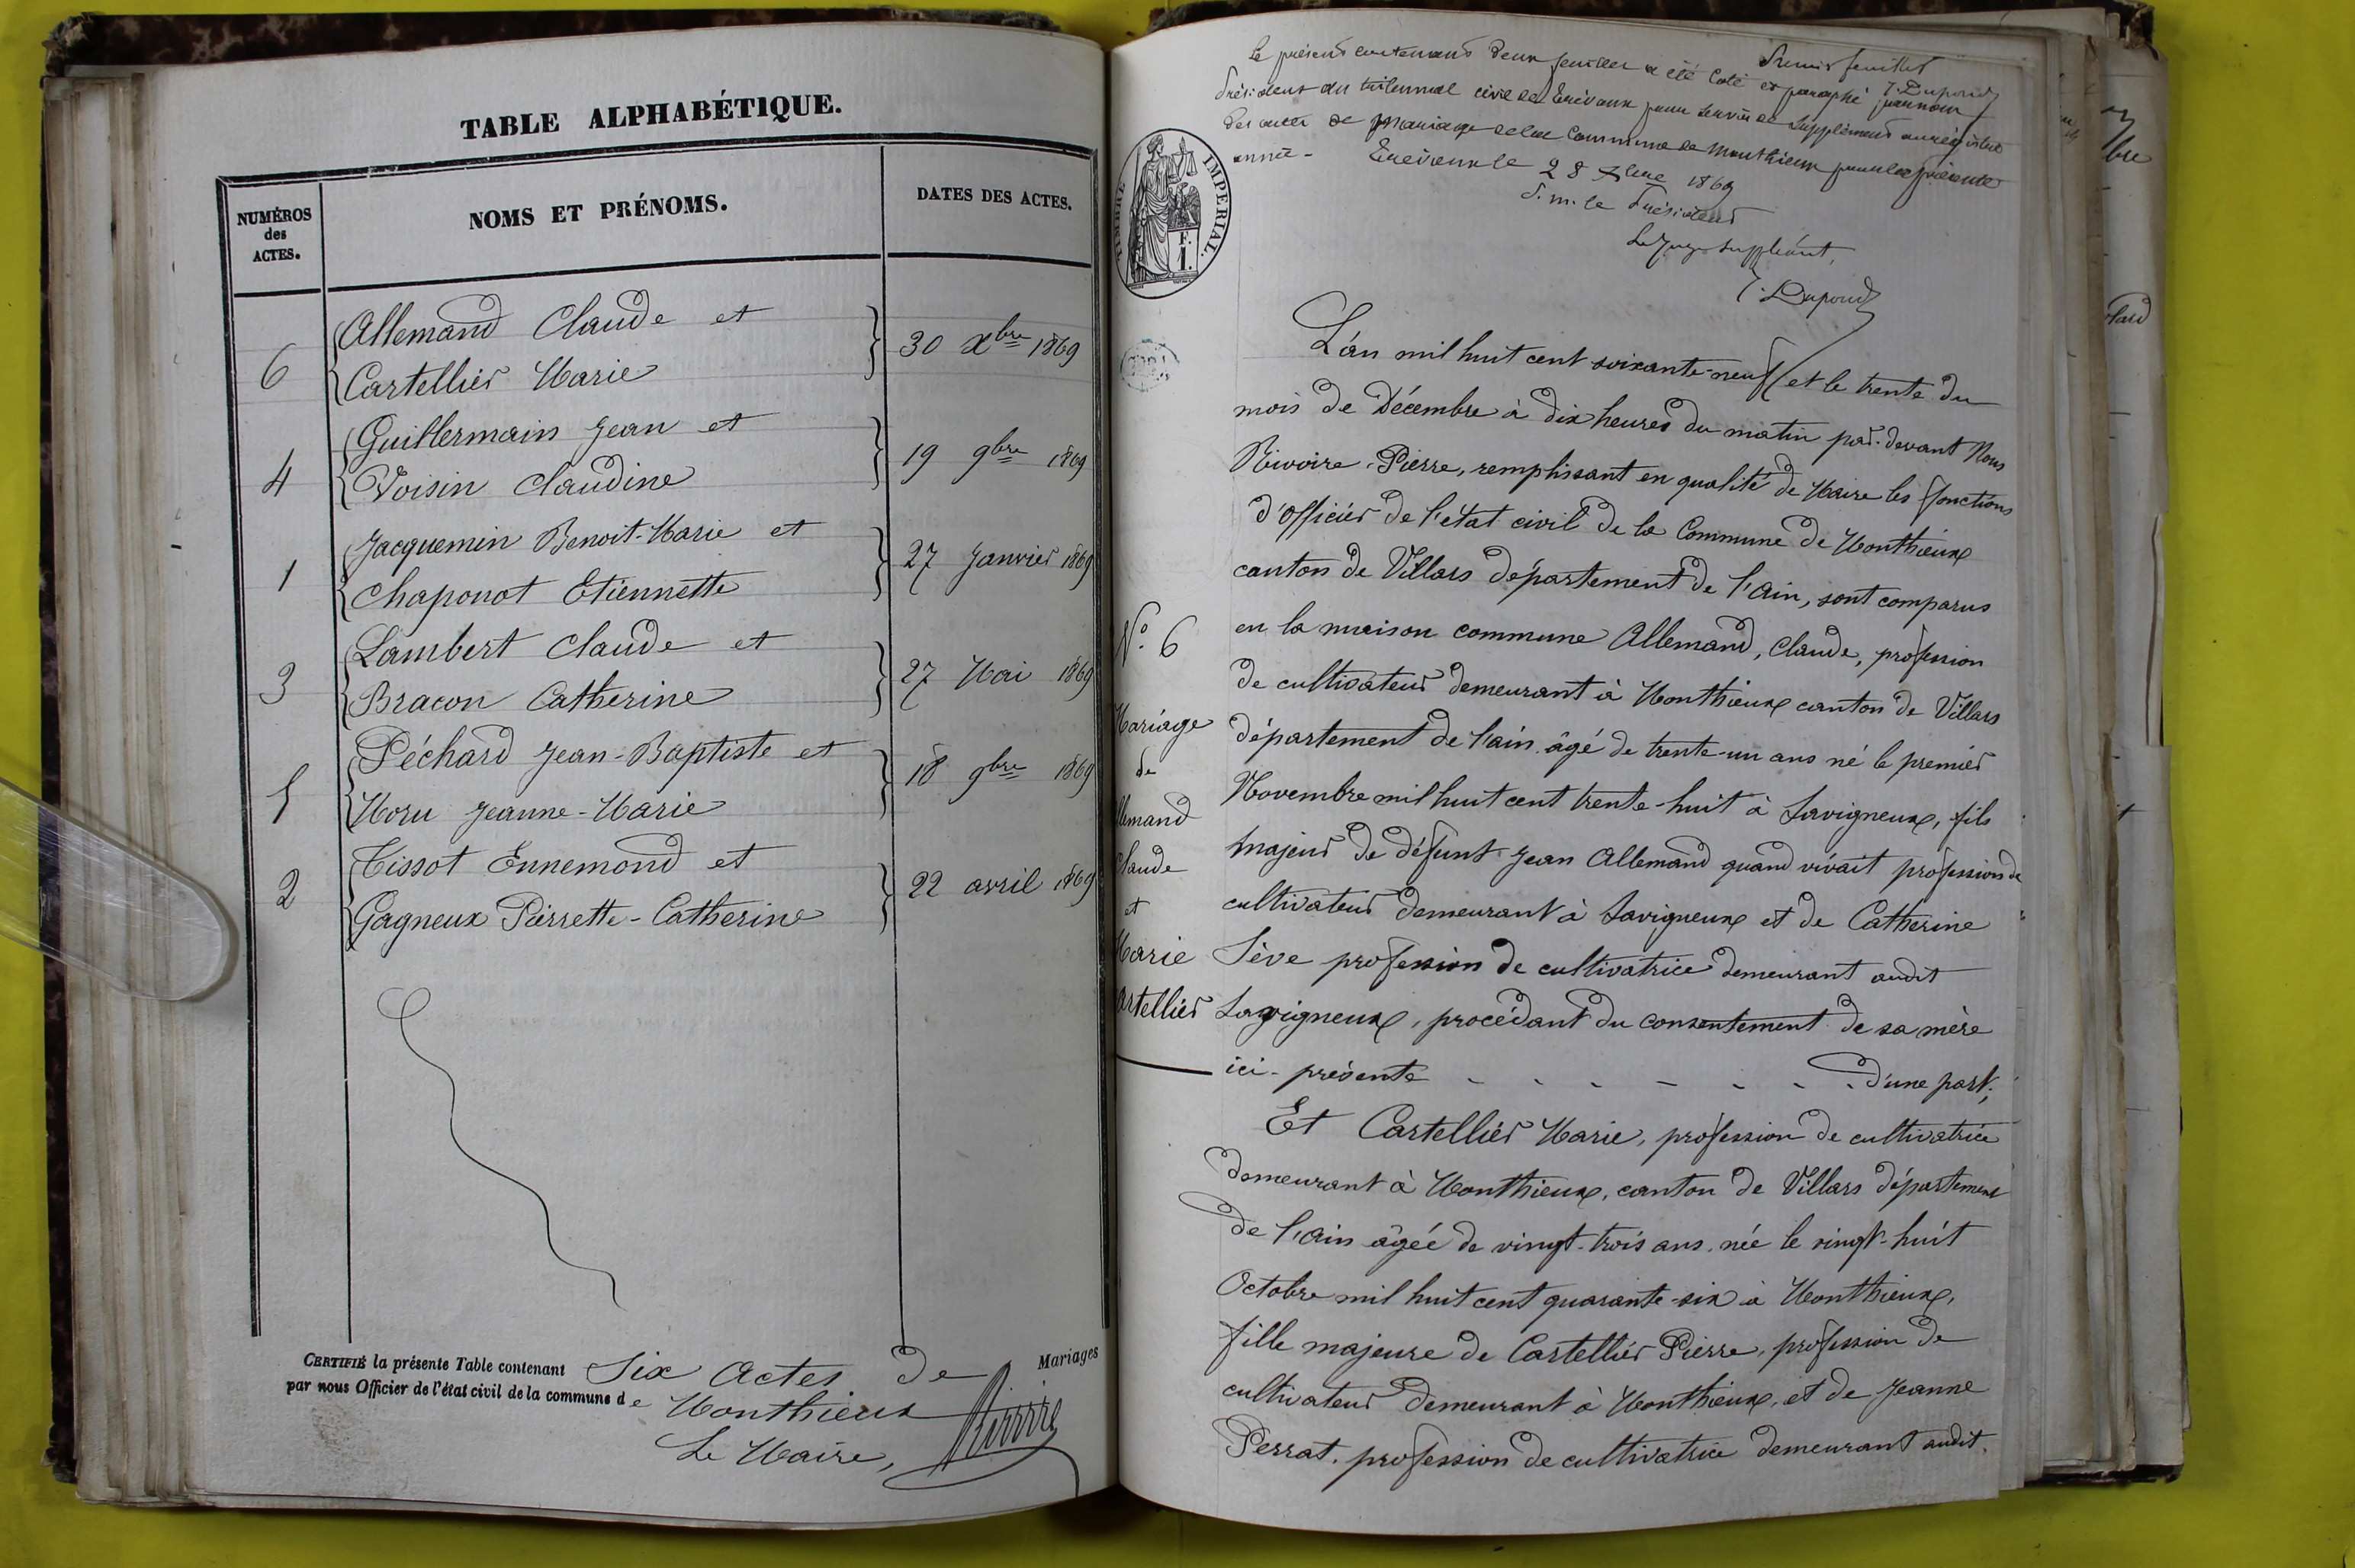 TABLE ALPHABÉTIQUE.
NUMÉROS
des
ACTES.
NOMS ET PRÉNOMS.
DATES DES ACTES.
6
Allemand Claude et
Cartellier Marie
30 Xbre 1869
4
Guillermain Jean et
Voisin Claudine
19 9bre 1869
1
Jacquemin Benoit-Marie et
Chaponot Etiennette
27 Janvier 1869
3
Lambert Claude et
Bracon Catherine
27 Mai 1869
5
Péchard Jean-Baptiste et
Moru Jeanne-Marie
18 9bre 1869
2
Tissot Ennemond et
Gagneux Pierrette-Catherine
22 avril 1869
CERTIFIÉ la présente Table contenant Six Actes de Mariages
par nous Officier de l'état civil de la commune de Monthieux
Le Maire,
Rivoire
Premier feuillet
T. Dupond
le présent contenant deux feuillets a été coté et paraphé par nous
Président du tribunal civil de Trévoux pour servir de supplément au registre
des actes de mariage de la Commune de Monthieux pour la présente
année - Trévoux le 28 Xbre 1869
P. m. le Président
Le Juge suppléant,
T. Dupond
TIMBRE IMPERIAL.
1 F.
L'an mil huit cent soixante-neuf et le trente du
mois de Décembre à dix heures du matin par-devant Nous
Rivoire Pierre, remplissant en qualité de Maire les fonctions
d'Officier de l'état civil de la Commune de Monthieux
canton de Villars département de l'Ain, sont comparus
en la maison commune Allemand, Claude, profession
de cultivateur demeurant à Monthieux canton de Villars
département de l'ain âgé de trente-un ans né le premier
Novembre mil huit cent trente-huit à Savigneux, fils
majeur de défunt Jean Allemand quand vivait profession de
cultivateur demeurant à Savigneux et de Catherine
Sève profession de cultivatrice demeurant audit
Savigneux, procédant du consentement de sa mère
ici-présente - - - - - - - d'une part;
Et Cartellier Marie, profession de cultivatrice
demeurant à Monthieux, canton de Villars département
de l'Ain âgée de vingt-trois ans, née le vingt-huit
Octobre mil huit cent quarante-six à Monthieux,
fille majeure de Cartellier Pierre, profession de
cultivateur demeurant à Monthieux, et de Jeanne
Perrat, profession de cultivatrice demeurant audit.
No. 6
Mariage
de
llemand
Claude
et
Marie
artellier